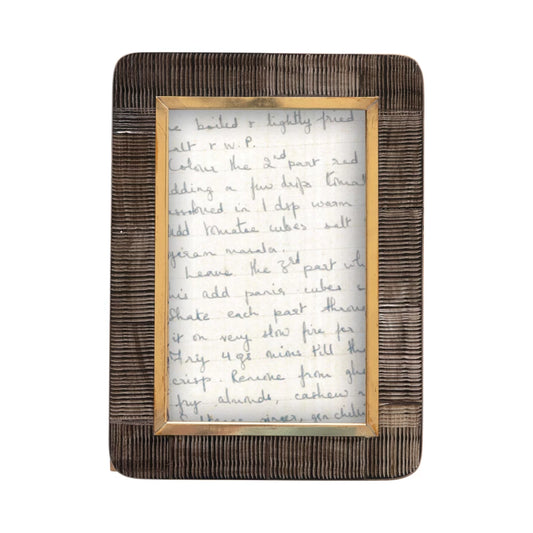 e boiled & lightly fried
alt & w.P.
Colour the 2nd part red
dding a few drops tomat
issolved in 1 dsp warm
add tomatoe cubes salt
garam masala.
Leave the 3rd part wh
his add panir cubes
Shake each part throu
it on very slow fire for
Fry 4 gs minus till th
crisp. Remove from gh
fry almonds, cashew
ginger, grn chilli